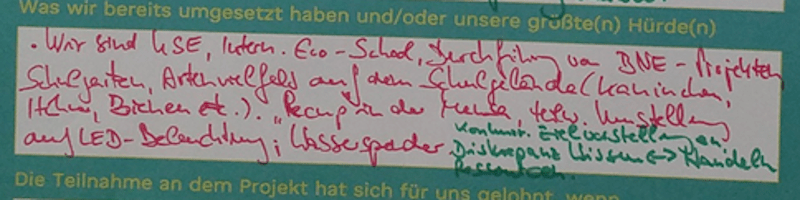 Was wir bereits umgesetzt haben und/oder unsere größte(n) Hürde(n)
• Wir sind USE, Intern. Eco-School, Durchführung von BNE-Projekten
Schulgarten, Artenvielfalt auf dem Schulgelände (Kaninchen,
Hühner, Bienen etc.). "Recup" in der Mensa, teilw. Umstellung
auf LED-Beleuchtung; Wasserspender
Kommun. Zielvorstellungen
Diskrepanz Wissen <-> Handeln
Ressourcen.
Die Teilnahme an dem Projekt hat sich für uns gelohnt, wenn